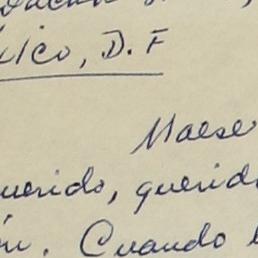 xico, D. F
Maese
uerido, querido
ón. Cuando